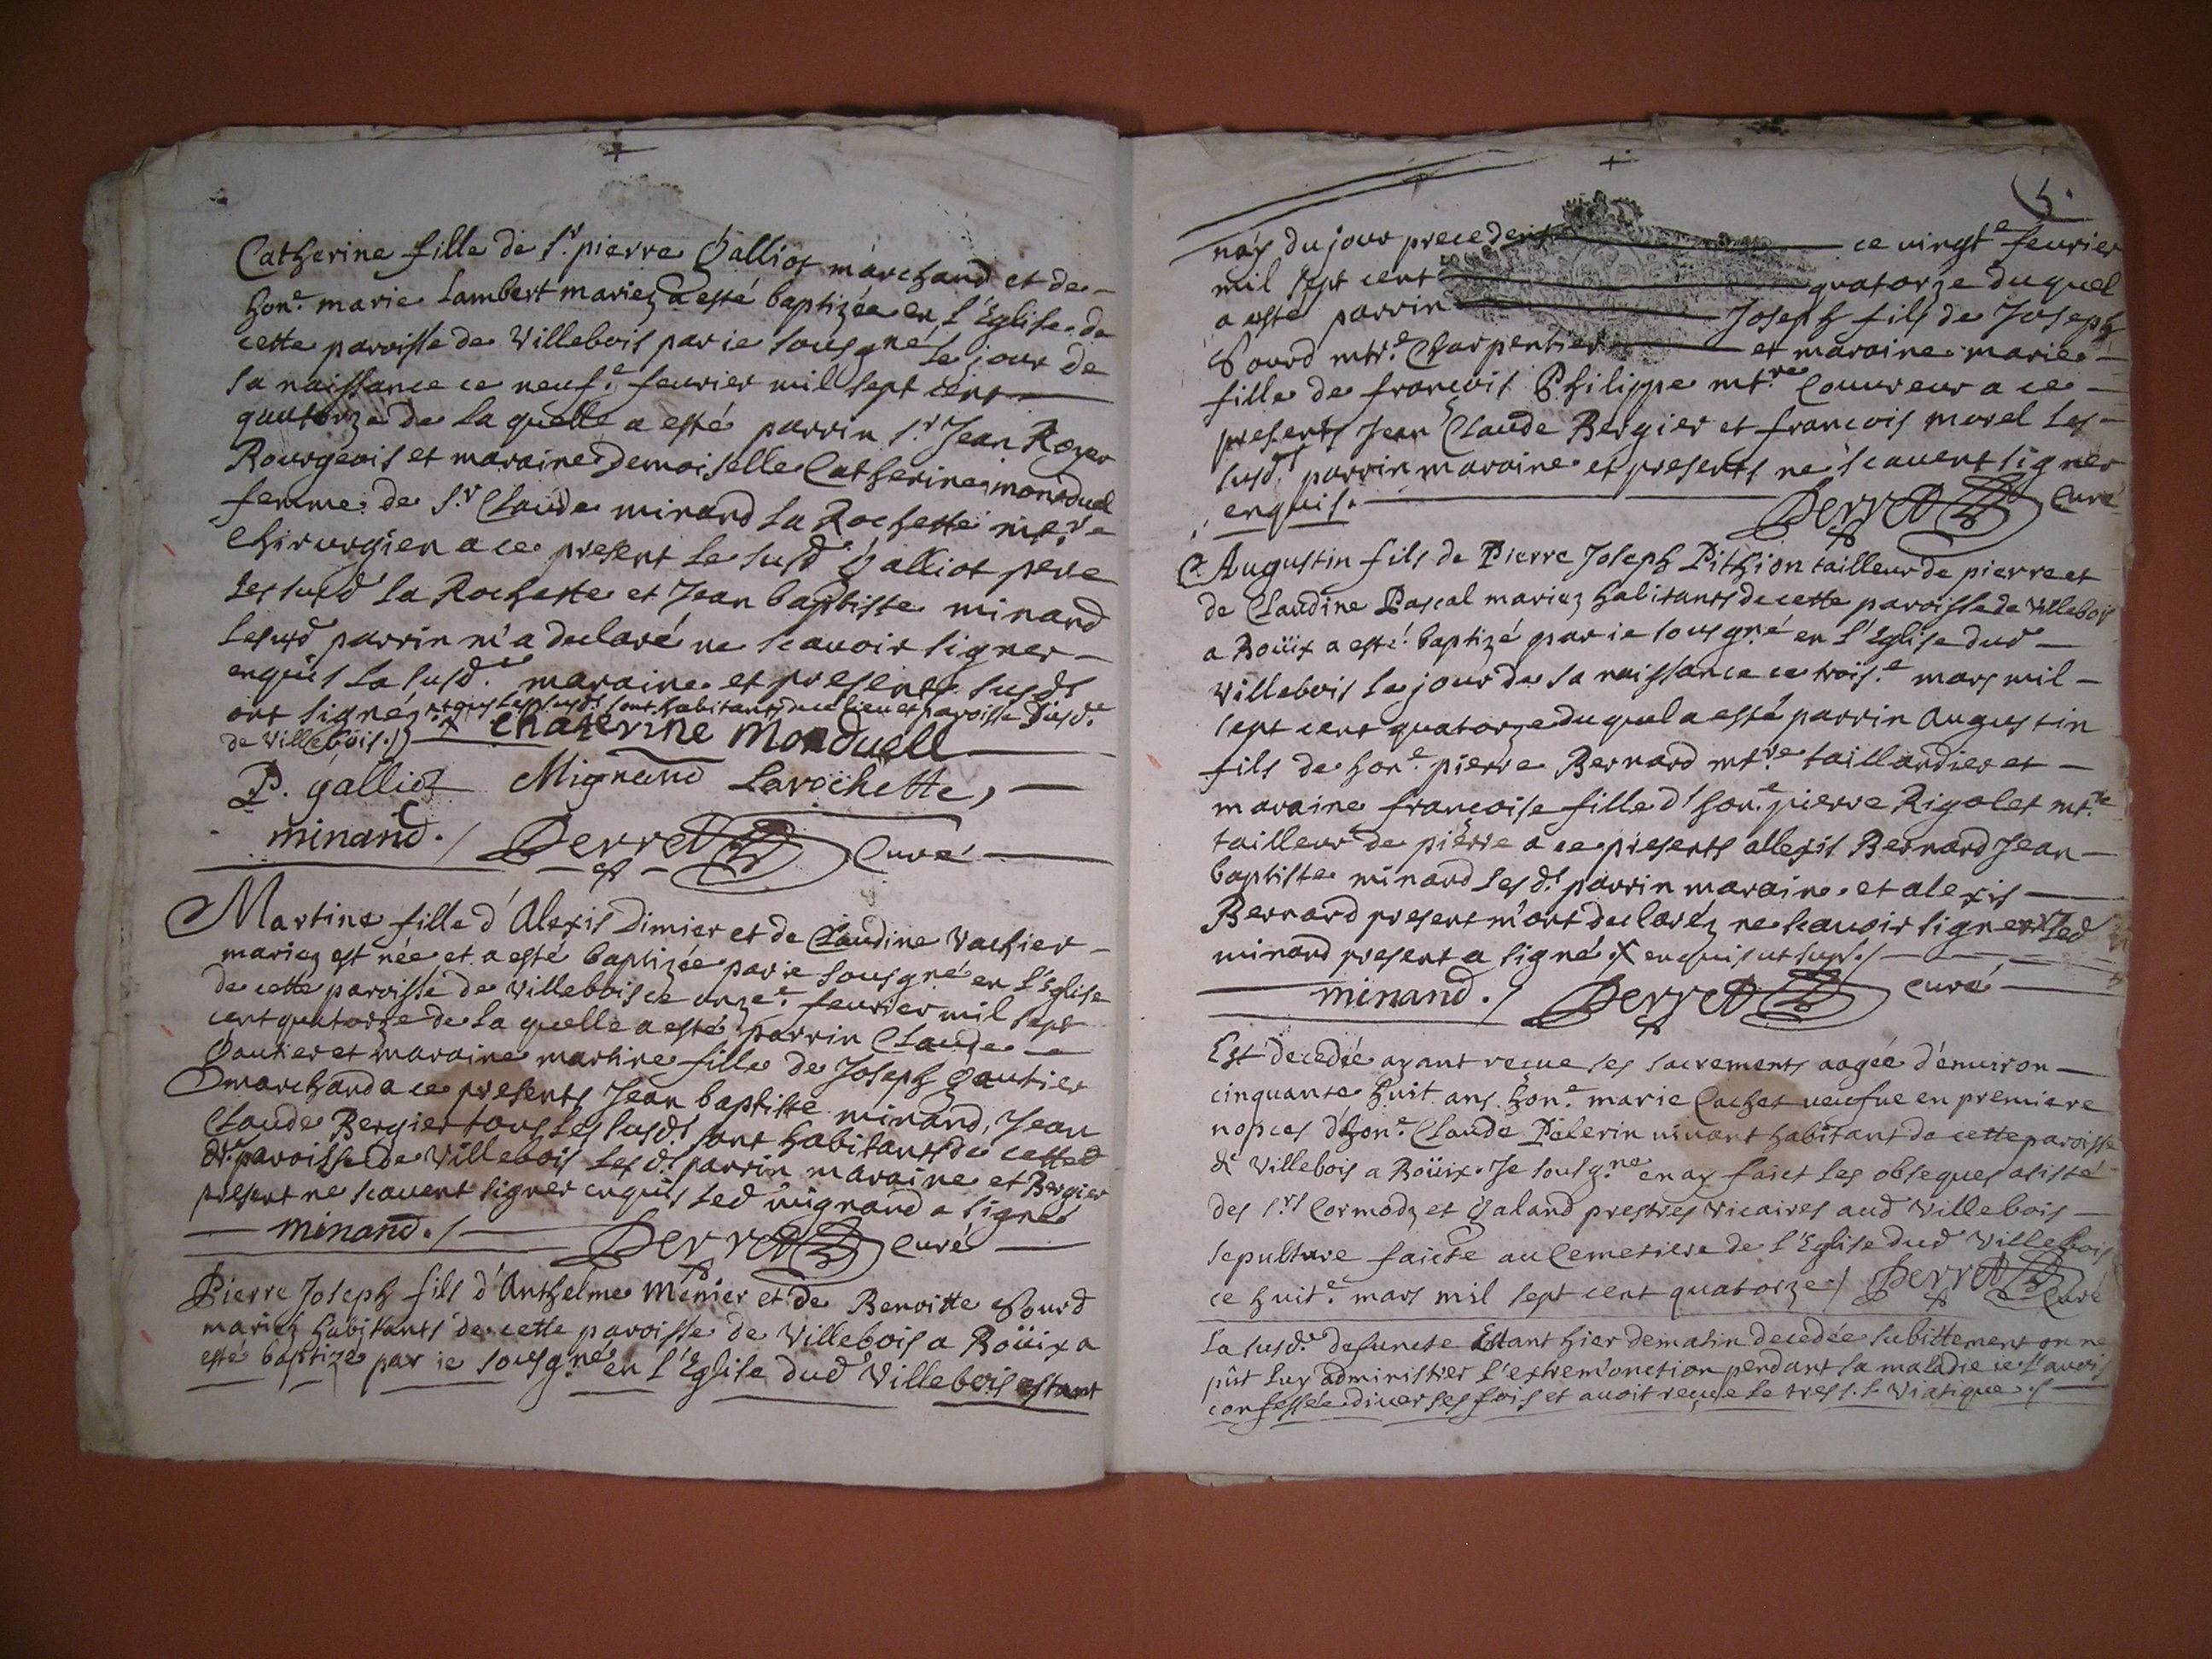 Catherine fille de Sr. pierre Galliot marchand et de
hone. marie Lambert mariez a esté baptizée en L'Eglise de
cette paroisse de Villebois par ie sousgné le jour de
sa naissance ce neufe. feurier mil sept cent
quatorze de La quelle a esté parrin Sr. Jean Rozer
Bourgeois et maraine demoiselle Catherine monduel
femme de Sr. Claude minand La Rochette mtre.
Chirurgien a ce present Le susd Galliot pere
Les susd La Rochette et Jean baptiste minand
Le susd parrin m'a declaré ne scauoir signer
enquis La susd.e maraine et presents susds
ont signéz X et tous les susds. sont habitants du lieu et paroisse dusd.
de Villebois./ X Chaterine Monduell
P. galliot Mignand Larochette,
minand./ Perret Curé
Martine fille d'Alexis Dimier et de Claudine Vachier
mariez est née et a esté baptizée par ie sousgné en L'Eglise
de cette paroisse de Villebois ce onze.e feurier mil sept
cent quatorze de La quelle a esté parrin Claude
Gautier et maraine martine fille de Joseph Gautier
marchand a ce presents Jean baptiste minand, Jean
Claude Bergier tous Les susds. sont habitants de cetted
de. paroisse de Villebois Les ds. parrin maraine et Bergier
present ne scauent signer enquis Led mignand a signé
minand./ Perret Curé
Pierre Joseph fils d'Anthelme Menier et de Benoitte Sourd
mariez habitants de cette paroisse de Villebois a Boüix a
esté baptizé par ie sousg.né en L'Eglise dud Villebois estant
5.
nay du jour precedent ce vingte feurier
mil sept cent quatorze duquel
a esté parrin Joseph fils de Joseph
Sourd mtre. Charpentier et maraine marie
fille de francois Philippe mt.re Couureur a ce
presents Jean Claude Bergier et francois morel Les
susd.ts parrin maraine et presents ne scauent signer
enquis. Perret Curé
Augustin fils de Pierre Joseph Pithion tailleur de pierre et
de Claudine Pascal mariez habitants de cette paroisse de Villebois
a Boüix a esté baptizé par ie sousgné en L'Eglise dud
Villebois Le jour de sa naissance ce trois.e mars mil
sept cent quatorze duquel a esté parrin Augustin
fils de hon.e pierre Bernard mt.re taillandier et
maraine francoise fille d'hon.e pierre Rigolet mt.re
tailleur de pierre a ce presents allexis Bernard Jean
baptiste minand Les ds. parrin maraine et alexis
Bernard present m'ont declaréz ne scauoir signer X Led
minand present a signé. X enquis ut sup./
minand./ Perret curé
Est decedée ayant recue ses sacrements aagée d'enuiron
cinquante huit ans hon.e marie Cachet veufue en premiere
nopces d'hon.e Claude Pelerin uiuant habitant de cette paroisse
de Villebois a Boüix. Je sousg.né en ay faict Les obseques asisté
des Srs. Cormodz et Galand prestres vicaires aud Villebois
sepulture faicte au Cemetiere de L'Eglise dud Villebois
ce huit.e mars mil sept cent quatorze./ Perret Curé
La susd.e defuncte Estant hier de matin decedée subittement on ne
pût Luy administrer L'extrem'onction pendant sa maladie ie L'auois
confessée diuerses fois et auoit reçue Le tres S.t Viatique./